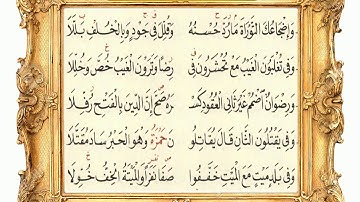 وَإِضْجَاعُكَ التَّوْرَاةَ مَا رُدَّ حُسْنُهُ وَقُلِّلَ فِي جَوْدٍ وَبِالْخُلْفِ بَلَّلَا
وَفِي تُغْلَبُونَ الْغَيْبُ مَعْ تُحْشَرُونَ فِي رِضًا وَتَرَوْنَ الْغَيْبُ خُصَّ وَخُلِّلَا
وَرِضْوَانٌ اضْمُمْ غَيْرَ ثَانِي الْعُقُودِ كَسْرَهُ صَحَّ إِنَّ الدِّينَ بِالْفَتْحِ رُفِّلَا
وَفِي يَقْتُلُونَ الثَّانِ قَالَ يُقَاتِلُونَ حَمْزَةُ وَهْوَ الْحَبْرُ سَادَ مُقَتَّلَا
وَفِي بَلَدٍ مَيْتٍ مَعَ الْمَيْتِ خَفَّفُوا صَفَا نَفَرًا وَالْمَيْتَةُ الْخِفُّ خُوِّلَا